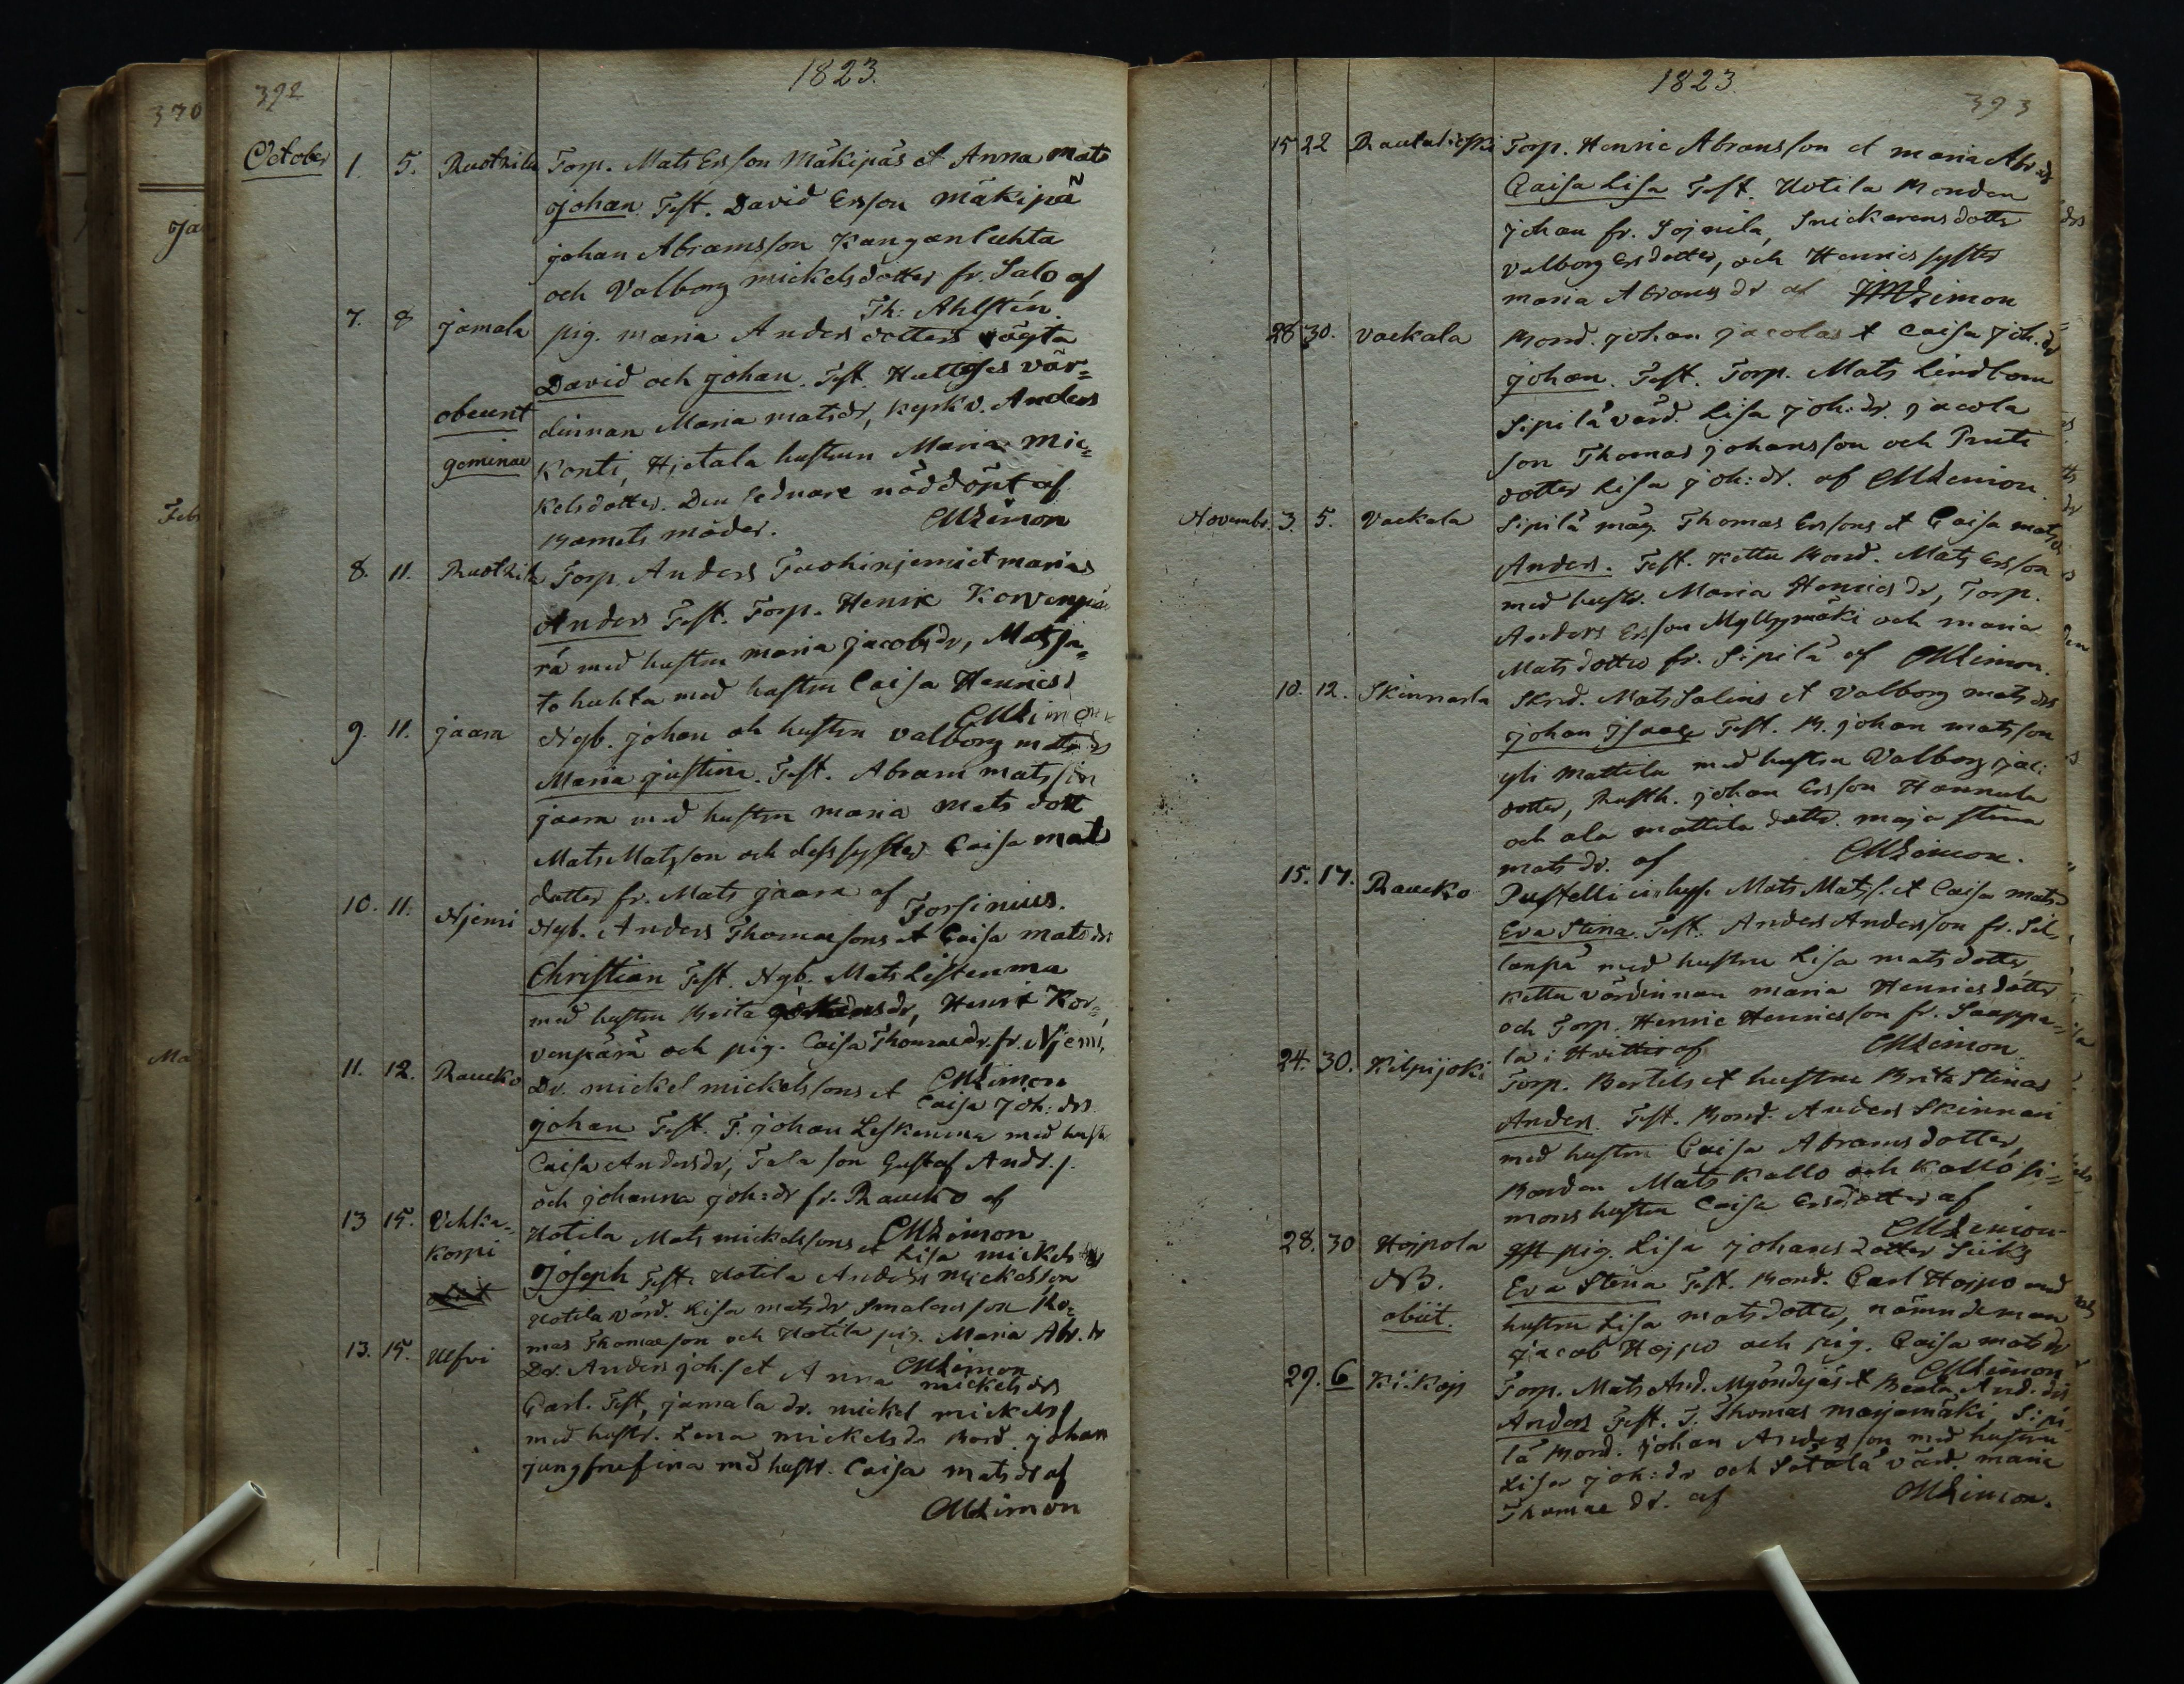 370
Ja
Feb
Ma
392
1823.
October 1. 5. Ruotzila Torp. Mats Ersson Mäkipäs et Anna Mats
Johan. Test. David Ersson Mäkipä
Johan Abramsson Kanganluhta
och Valborg Mickelsdotter fr. Salo af
Th: Ahlstén.
7. 8 Jamala pig. Maria Andersdotters oägta
David och Johan. Test. Huttises vär=
obeunt dinnan Maria Matsdr, kyrkv. Anders
geminae Konti, Hjetala hustrun Maria Mic=
kelsdotter. Den sednare nöddöpt af
barnets moder. CMLimon
8. 11. Ruotzila Torp. Anders Tuohinjemi et Marias
Anders Test. Torp. Henric Korvenpää
rä med hustru Maria Jacobsdr, Matsja=
to huhta med hustru Caisa Henricsd
CMLimon
9. 11. Jaara Nyb. Johan och hustru Valborg Matsdrs
Maria Justina. Test. Abram Matsson
Jaara med hustru Maria Matsdott
Mats Matsson och dess syster Caisa Mats
dotter fr. Mats Jaara af
Forsinius.
10. 11. Njemi Nyb. Anders Thomassons et Caisa Matsdrs
Christian Test. Nyb. Mats Listenma
med hustru Brita dr, Henric Kor=
venpärä och pig. Caisa Thomasdr. fr. Njemi,
CMLimon
11. 12. Raucko Dr. Mickel Mickelssons et Caisa Joh: drs
Johan Test. T. Johan Leskenma med hustr
Caisa Andersdr, Tala son Gustaf Ands. s.
och Johanna Joh: dr fr. Raucko af
CMLimon
13 15. Vehka= Uotila Mats Mickelssons et Lisa Mickelsdrs
korpi Joseph Test. Uotila Anders Mickelsson
Uotila värd. Lisa Matsdr Smalars son Tho=
mas Thomasson och Uotila pig. Maria Abr. dr
CMLimon
13. 15. Ulfvi Dr. Anders Johs et Anna Mickelsdrs
Carl. Test, Jamala dr. Mickel Mickelss
med hustr. Lena Mickelsdr Bond. Johan
Jungfrufina md hustr. Caisa Matsdr af
CMLimon
1823.
393
15 22 Rautalioski Torp. Henric Abramsson et Maria Abr.ds
Caisa Lisa Test. Uotila Bonden
Johan fr. Sojnila, Snickarens dotter
Valborg Ersdotter, och Henrics syster
Maria Abramsdr af CMLimon
28 30. Vackala Bond. Johan Jacolas et Caisa Joh. dr
Johan. Test. Torp. Mats Lindbom
Sipilä värd. Lisa Joh: dr. Jacola
son Thomas Johansson och Pruti
dotter Lisa Joh: dr. af CMLimon.
Novembr. 3. 5. Vackala Sipilä måg. Thomas Erssons et Caisa Matsdr
Anders. Test. Kettu Bond. Mats Ersson
med hustr. Maria Henricsdr, Torp.
Anders Ersson Myllymäki och Maria
Matsdotter fr. Sipilä af CMLimon.
10. 12. Skinnarla Skrd. Mats Salins et Valborg Matsdrs
Johan Isaac Test. B. Johan Matsson
yli Mattila med hustru Valborg Jac:
dotter, Rusth. Johan Ersson Hannula
och ala Mattila dotter. Maja Stina
Matsdr. af CMLimon.
15. 17. Raucko Pustelli inhys. Mats Mats s. et Caisa Matsd
Eva Stina. Test. Anders Andersson fr. Sil=
lanpä med hustru Lisa Matsdotter
Kettu värdinnan Maria Henricsdotter
och Torp. Henric Henricsson fr. Saappa=
la i Hvittis af CMLimon
24. 30. Kilpijoki Torp. Bertels et hustru Brita Stinas
Anders. Test. Bond. Anders Skinnari
med hustru Caisa Abramsdotter,
Bonden Mats Kallo och Kallo Si=
mons hustru Caisa Ersdotter af
CMLimon
28. 30 Hojpola pig. Lisa Johansdotter Suiks
NB. Eva Stina Test. Bond. Carl Hojpo med
obiit. hustru Lisa Matsdotter, nämndeman
Jacob Hojpo och pig. Caisa Matsdr
CMLimon
29. 6 Ki:koji Torp. Mats And. Myöndyjäs et Beata And. drs
Anders Test. T. Thomas Marjamäki, Sipi=
lä Bond. Johan Andersson med hustru
Lisa Joh: dr och Sätälä värd. Maria
Thomae dr. af CMLimon.